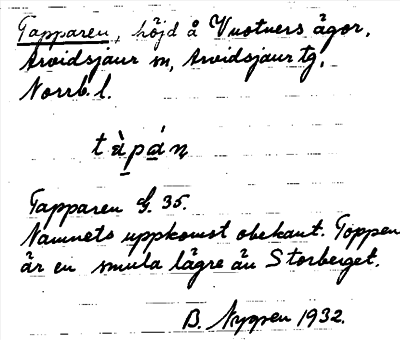 Tapparen, höjd å Vuotners ägor,
Arvidsjaur sn, Arvidsjaur tg,
Norrb. l.
tȧ̀pán̥
Tapparen G. 35.
Namnets uppkomst obekant. Toppen
är en smula lägre än Storberget.
B. Nygren 1932.